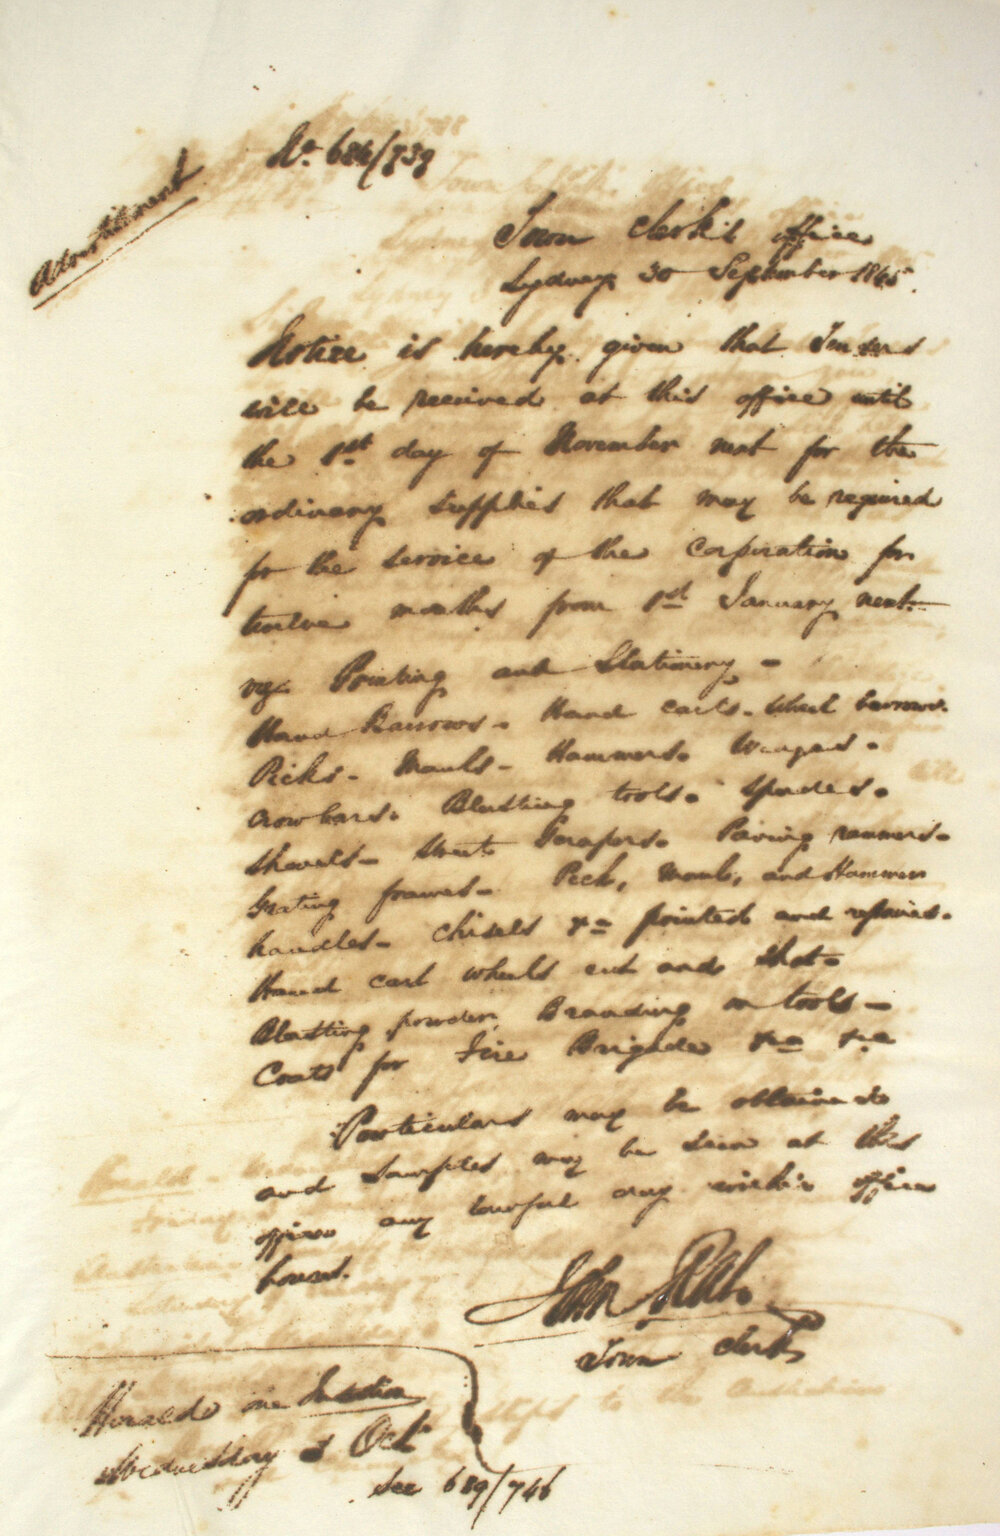 Advertisement
No. 686/739
Town Clerk's Office
Sydney 30 September 1865.
Notice is hereby given that Tenders
will be received at this office until
the 1st day of November next for the
ordinary supplies that may be required
for the service of the Corporation for
twelve months from 1st January next.
viz. Printing and Stationery -
Hand Barrows - Hand carts - Wheel barrows.
Picks - Mauls - Hammers. Wedges.
Crowbars. Blasting tools. Spades.
Shovels - Street Scrapers. Paving rammers -
Grating frames - Pick, Maul, and Hammer
handles - Chisels &c pointed and repaired.
Hand cart wheels cut and Shot -
Blasting powder, Branding on tools -
Coats for Fire Brigade &c &c
Particulars may be obtained
and Samples may be seen at this
office any lawful day within office
hours.
John
Town Clerk
Herald one Insertion
Wednesday Oct
See 689/746